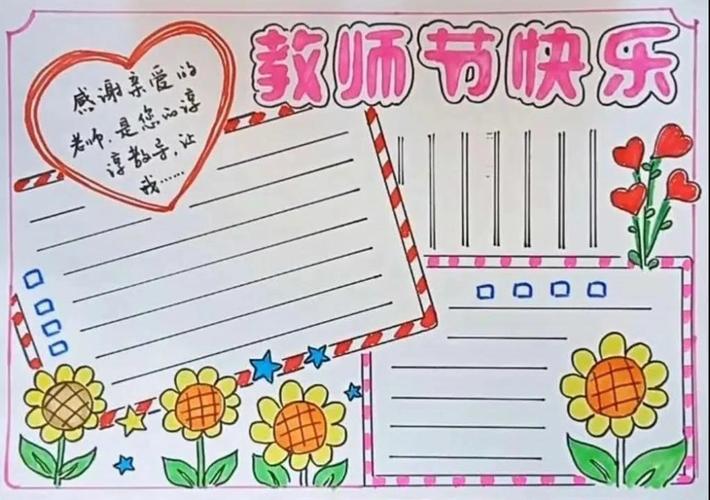 教师节快乐
感谢亲爱的
老师,是您的谆
谆教导,让
我……